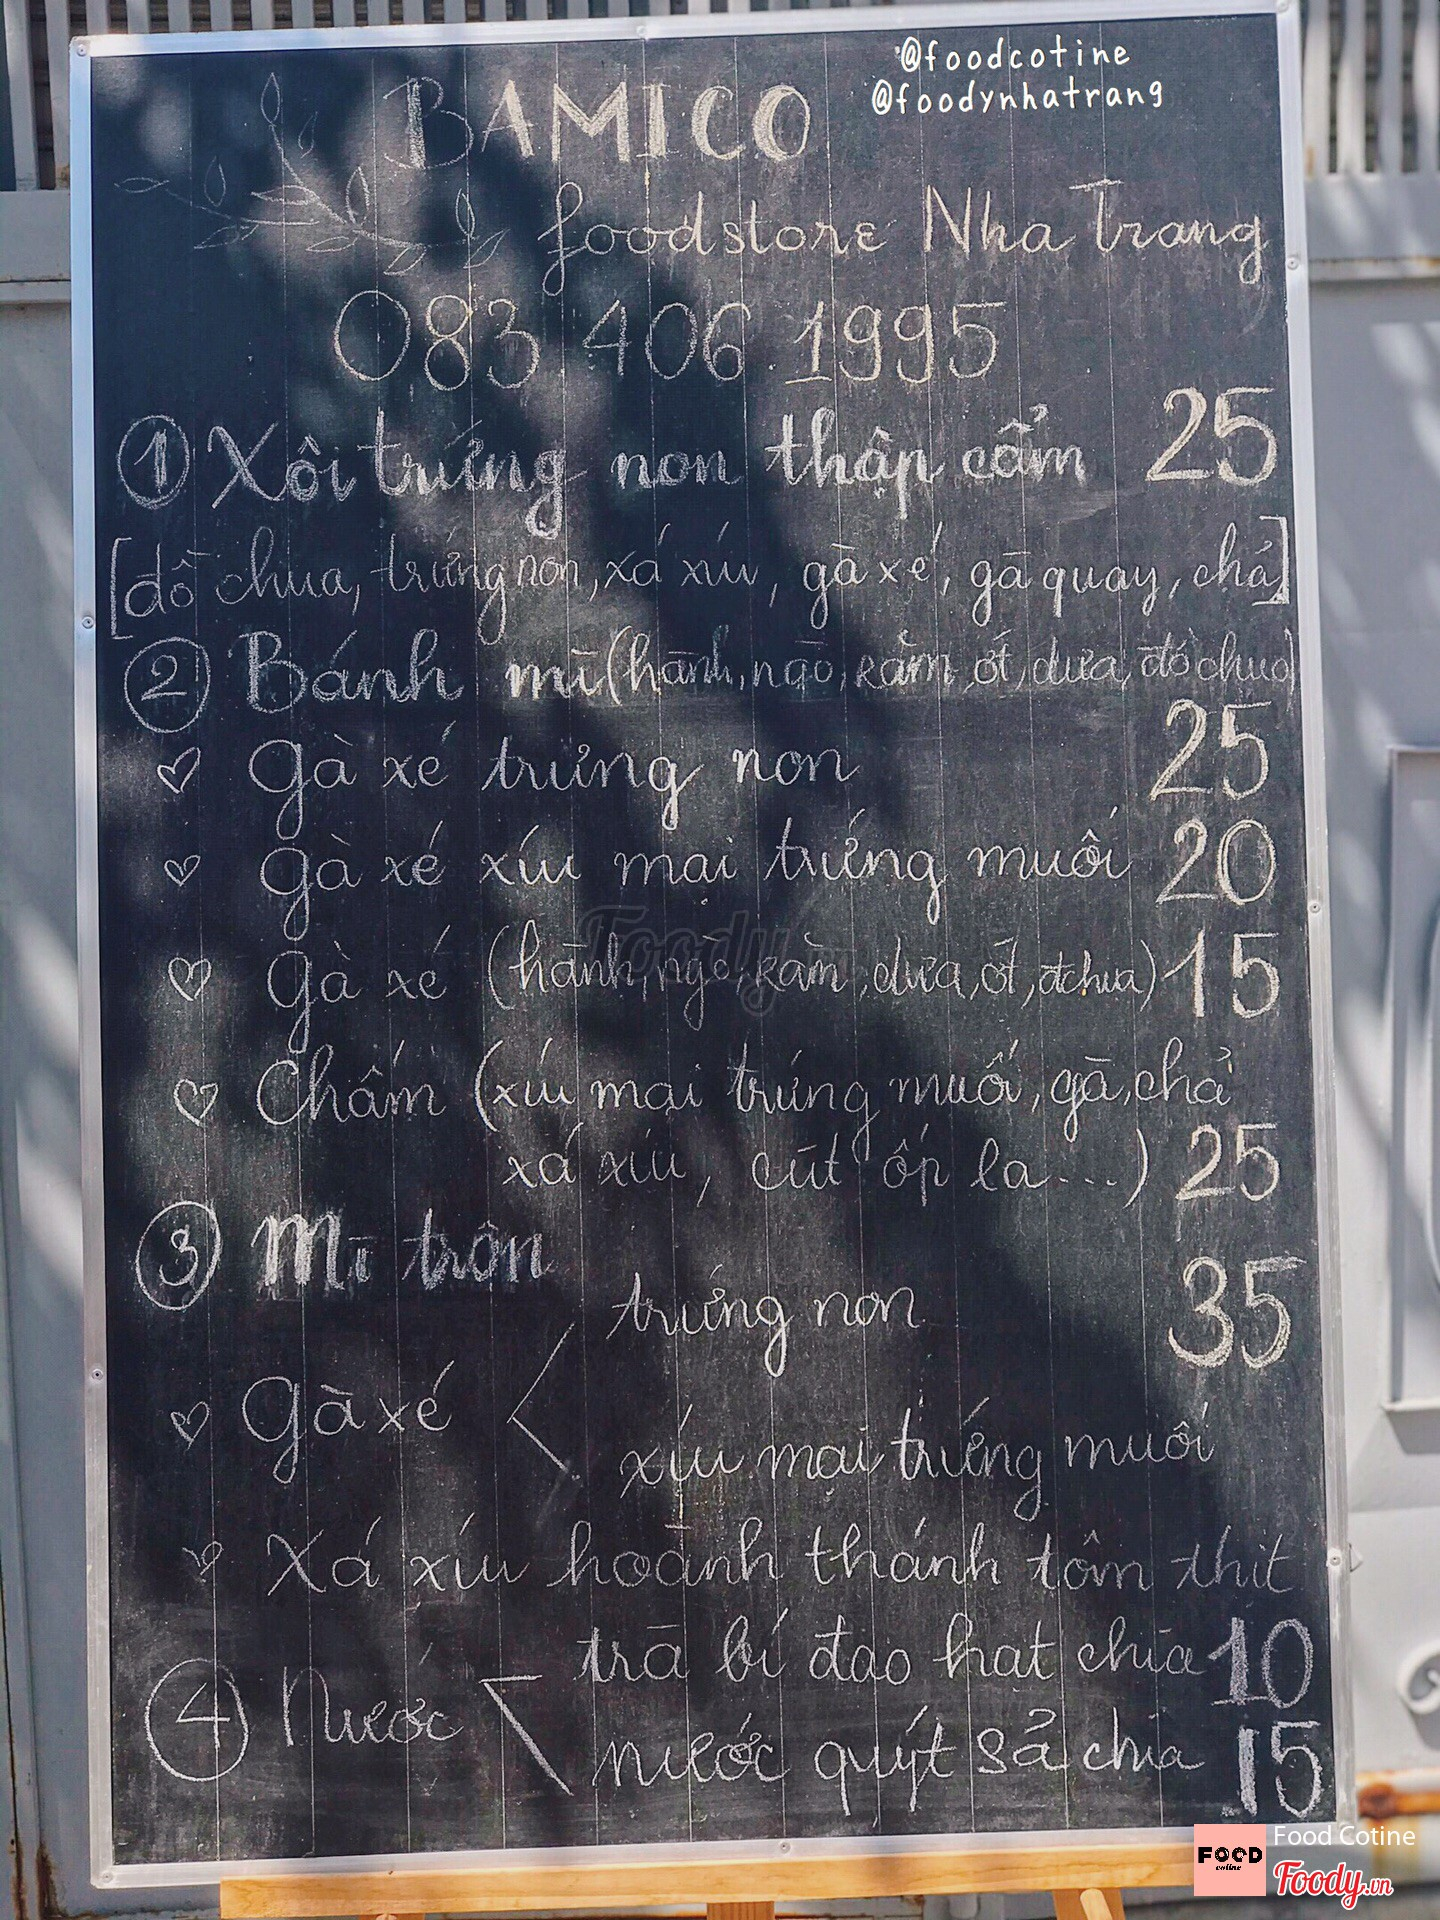 @foodcotine
@foodynhatrang
BAMICO
foodstore Nha Trang
083 406 1995
1 Xôi trứng non thập cẩm 25
[đồ chua, trứng non, xá xíu, gà xé, gà quay, chả]
2 Bánh mì (hành, ngò, rằm, ớt, dưa, đồ chua)
gà xé trứng non 25
gà xé xíu mại trứng muối 20
gà xé (hành, ngò, răm, dưa, ớt, đchua) 15
Chấm (xíu mại trứng muối, gà, chả
xá xíu, cút ốp la...) 25
3 Mì trộn
trứng non 35
Gà xé
xíu mại trứng muối
Xá xíu hoành thánh tôm thịt
trà bí đao hạt chia 10
4 Nước
nước quýt sả chia 15
Foody
FOOD
cotine
Food Cotine
Foody.vn